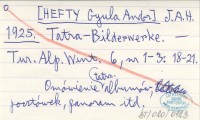 [HEFTY Gyula Andor] J.A.H.
1925. Tatra-Bilderwerke. —
Tur. Alp. Wint. 6, nr 1-3: 18-21.
Tatra.
Omówienie albumów,
pocztówek, panoram itd.